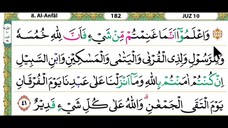 8. Al-Anfâl 182 JUZ 10
وَاعْلَمُوْٓا اَنَّمَا غَنِمْتُمْ مِّنْ شَيْءٍ فَاَنَّ لِلّٰهِ خُمُسَهٗ
وَلِلرَّسُوْلِ وَلِذِى الْقُرْبٰى وَالْيَتٰمٰى وَالْمَسٰكِيْنِ وَابْنِ السَّبِيْلِ
اِنْ كُنْتُمْ اٰمَنْتُمْ بِاللّٰهِ وَمَآ اَنْزَلْنَا عَلٰى عَبْدِنَا يَوْمَ الْفُرْقَانِ
يَوْمَ الْتَقَى الْجَمْعٰنِۗ وَاللّٰهُ عَلٰى كُلِّ شَيْءٍ قَدِيْرٌ ٤١